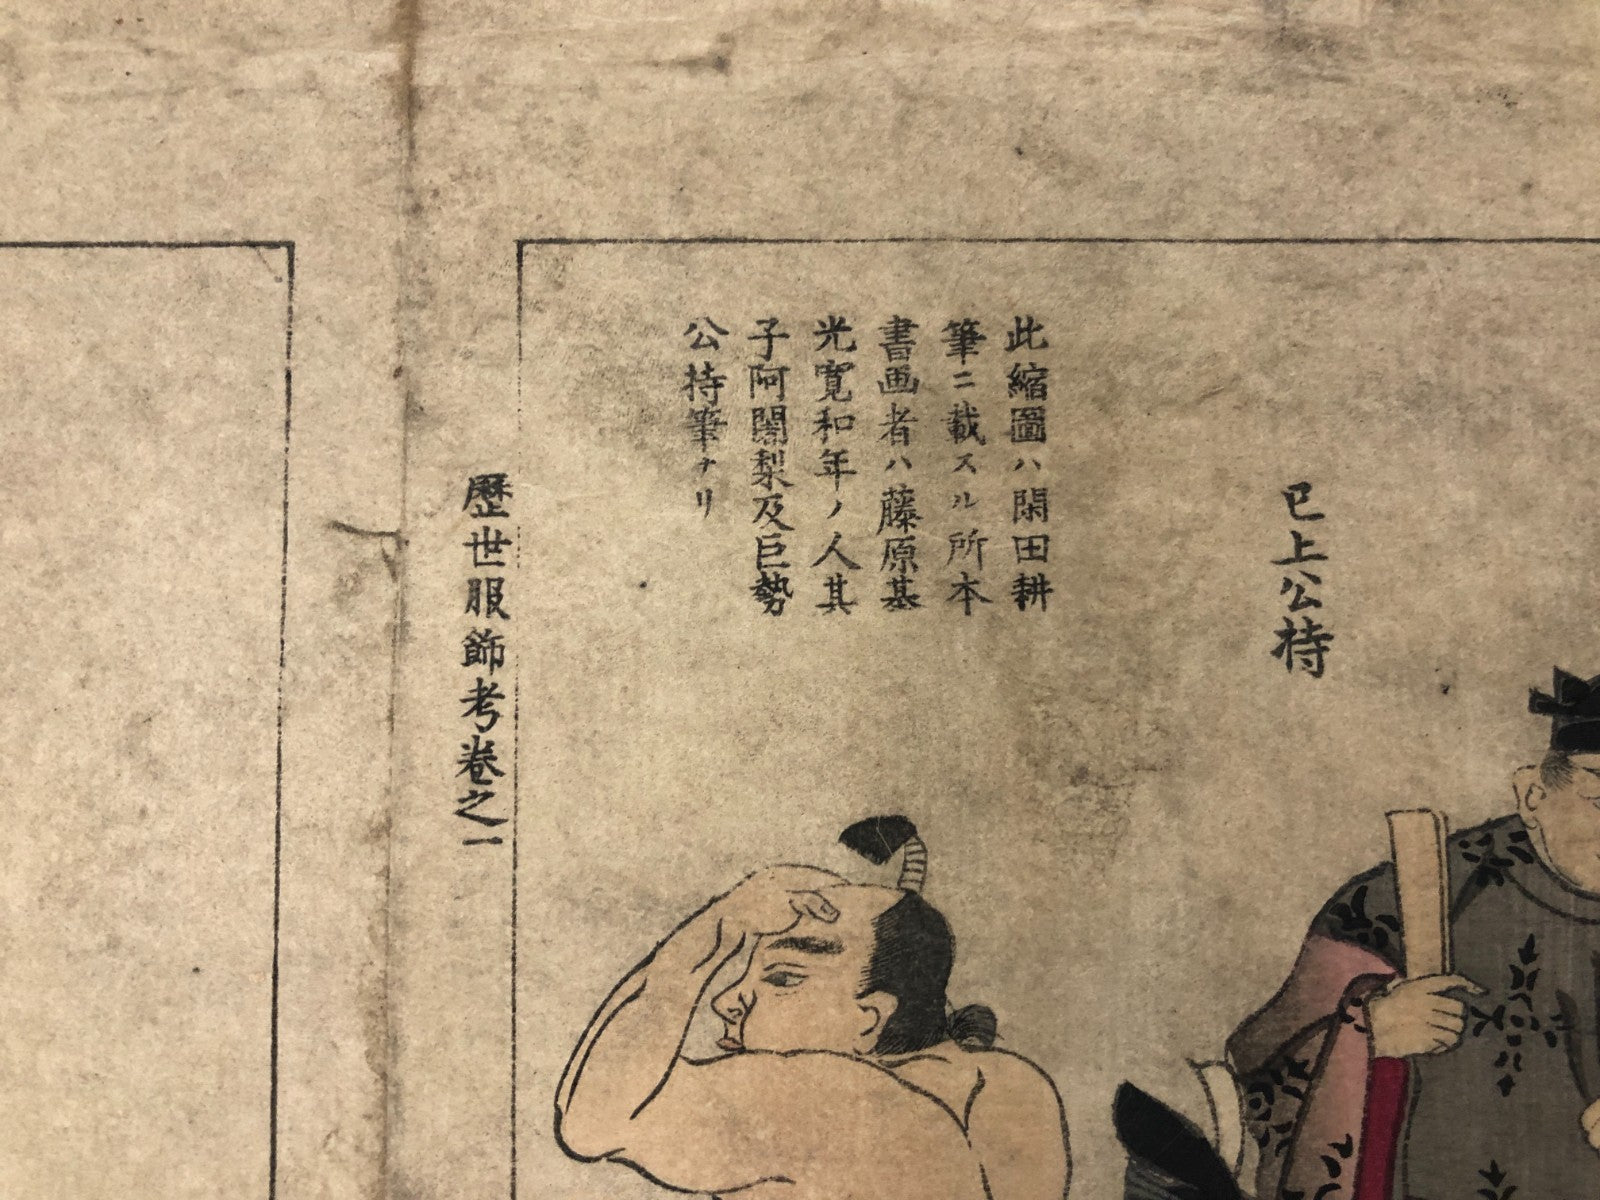 已上公持
此縮圖ハ閑田耕
筆ニ載スル所本
書画者ハ藤原基
光寛和年ノ人其
子阿闍梨及巨勢
公持筆ナリ
歷世服飾考卷之一